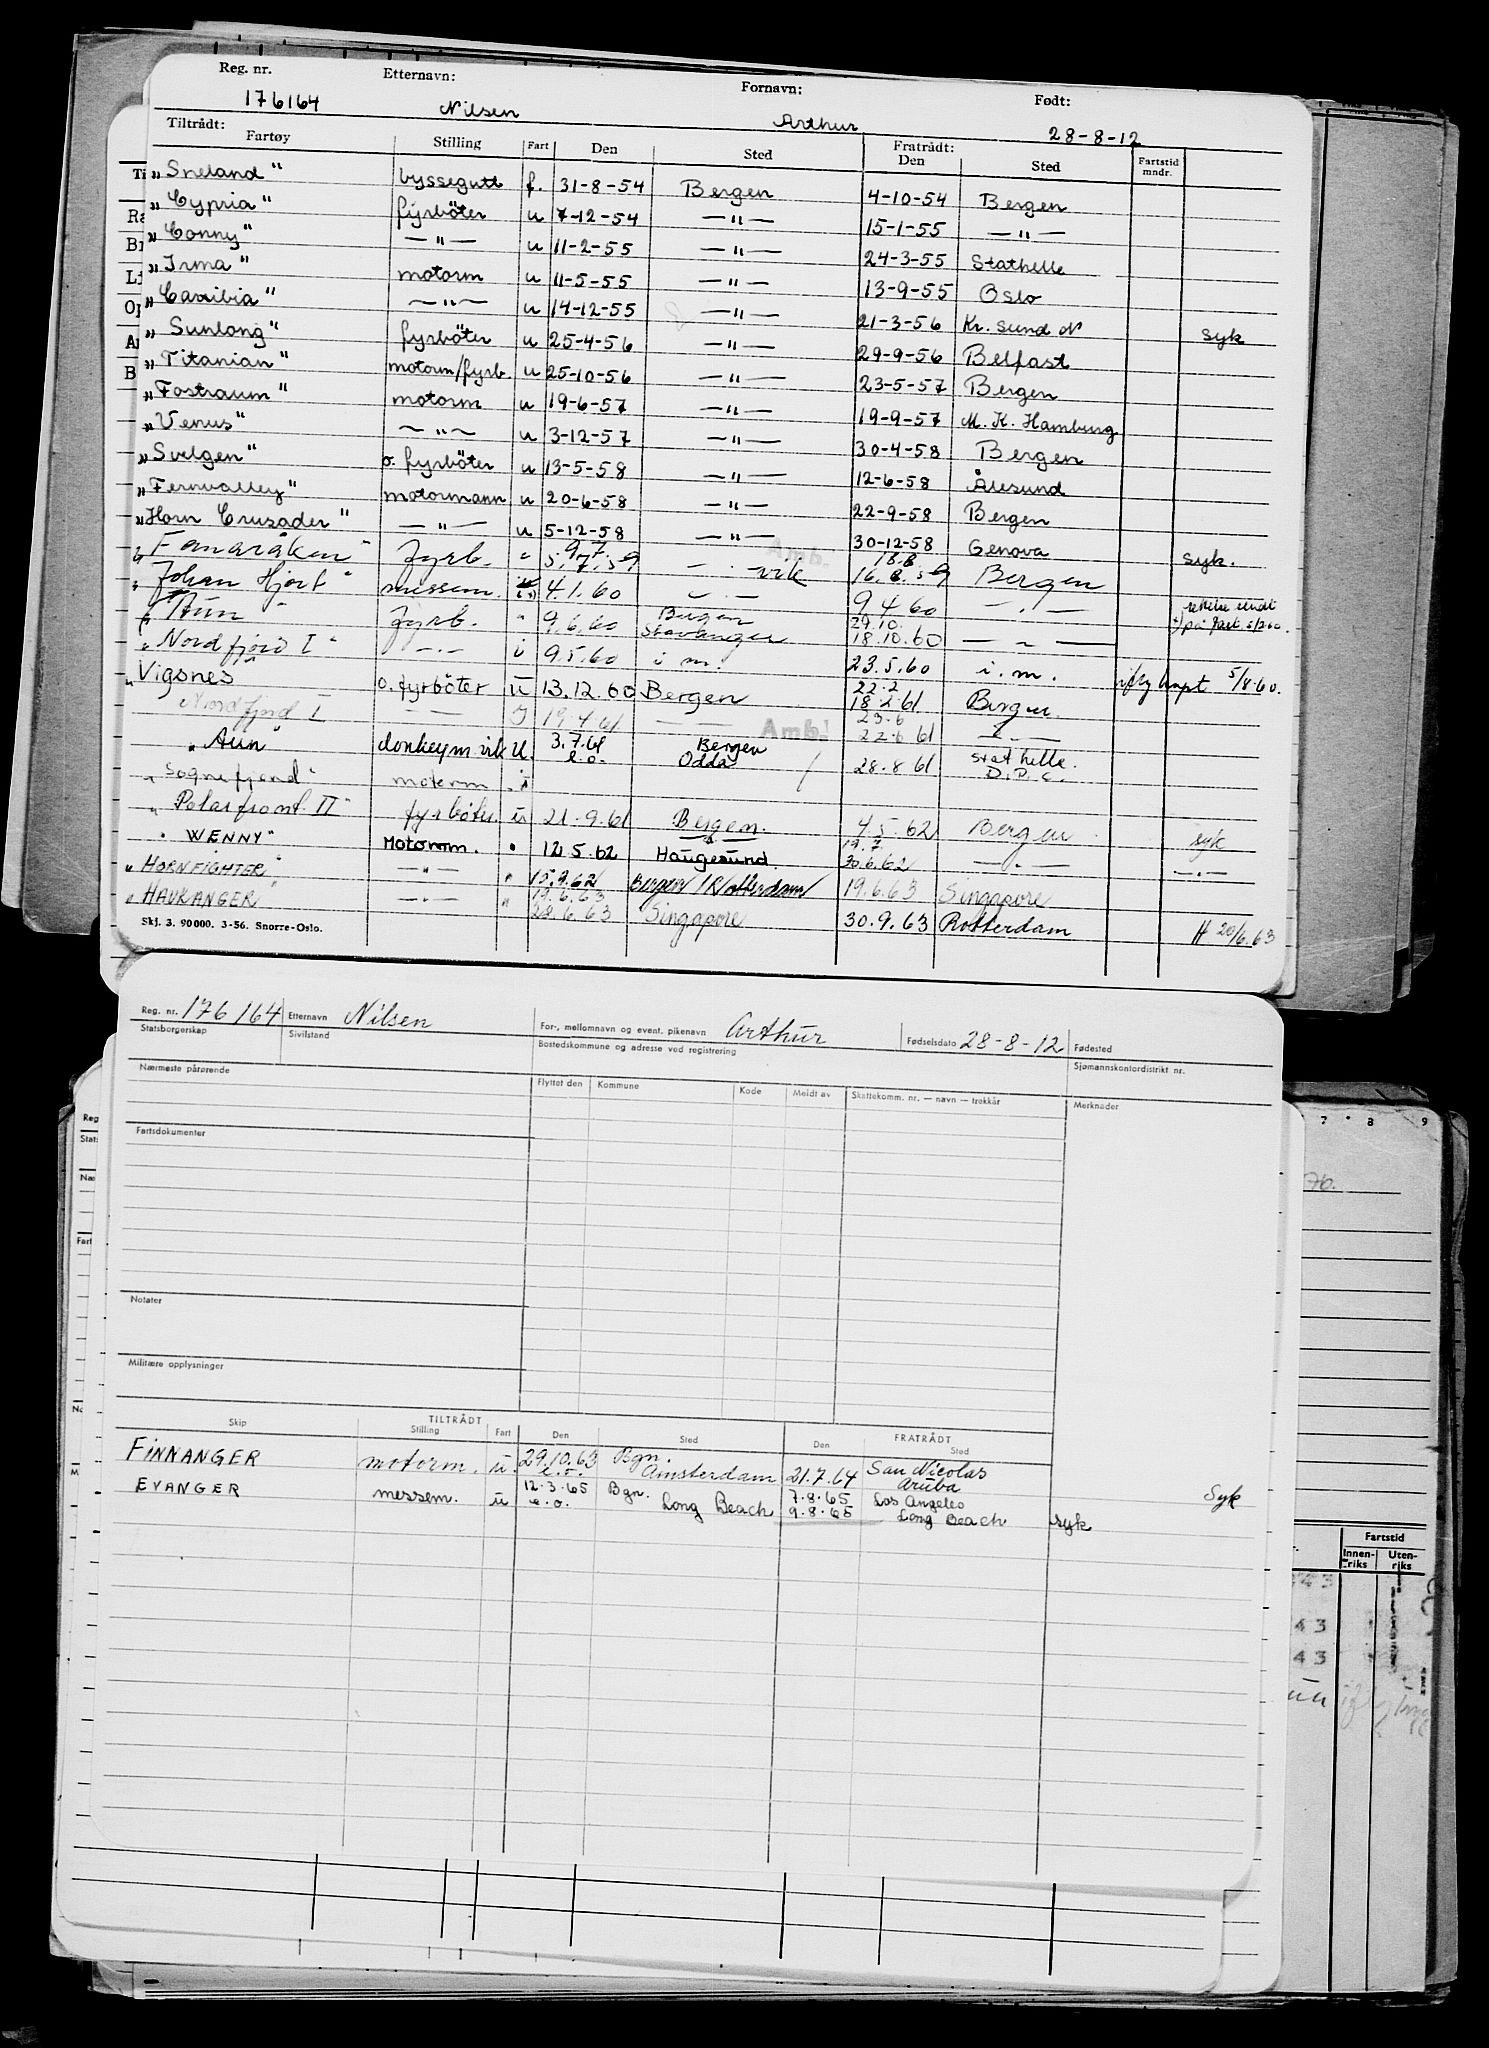 Reg. nr. Etternavn: Fornavn: Født:
176164 Nilsen Arthur 28-8-12
Tiltrådt: Fratrådt:
Fartøy Stilling Fart Den Sted Den Sted Fartstid mndr.
„Sneland" byssegutt f. 31-8-54 Bergen 4-10-54 Bergen
„Cypria" fyrböter u 7-12-54 —"— 15-1-55 —"—
„Conny" —"— u 11-2-55 —"— 24-3-55 Stathelle
„Irma" motorm u 11-5-55 —"— 13-9-55 Oslo
„Caribia" —"— u 14-12-55 —"— 21-3-56 Kr. sund N syk
„Sunlong" fyrböter u 25-4-56 —"— 29-9-56 Belfast
„Titanian" motorm/fyrb. u 25-10-56 —"— 23-5-57 Bergen
„Fostraum" motorm u 19-6-57 —"— 19-9-57 M. K. Hamburg
„Venus" —"— u 3-12-57 —"— 30-4-58 Bergen
„Svelgen" o. fyrböter u 13-5-58 —"— 12-6-58 Ålesund
„Fernvalley" motormann u 20-6-58 —"— 22-9-58 Bergen
„Horn Crusader" —"— u 5-12-58 —"— 30-12-58 Genova syk.
„Fanaråken" fyrb. " 5.7.59 vik 16.8.59 Bergen
„Johan Hjort" messem. 4.1.60 9 4 60
„Aun" fyrb. " 9.6.60 Bergen Stavanger 29.10. 18.10.60
„Nordfjord I" —.— i 9.5.60 i m. 23.5.60 i. m. 5/8.60.
„Vigsnes" o. fyrböter ü 13.12.60 Bergen 22.2 18.2.61 Bergen
Nordfjord I 19.4.61 Amb. 23.6 22.6 61
„Aun" donkeym. vik U. 3.7.61 e.o. Bergen Odda 28.8 61 Stathelle. D.P.C.
„Sognefjord" motorm
„Polarfront II" fyrböter ü 21.9.61 Bergen. 4.5.62 Bergen syk
„WENNY" Motorm. " 12.5.62 Haugesund 30.6.62 —.— —.—
„HORN FIGHTER" —"— " 15.9.62 Bergen /R/otterdam/ 19.6.63 Singapore
„HAUKANGER" —.— " 19.6.63 20.6.63 Singapore 30.9.63 Rotterdam H 20/6.63
Skj. 3. 90000. 3-56. Snorre-Oslo.
Reg. nr. 176164 Etternavn Nilsen For-, mellomnavn og event. pikenavn Arthur Fødselsdato 28-8-12 Fødested
Statsborgerskap Sivilstand Bostedskommune og adresse ved registrering Sjømannskontordistrikt nr.
Nærmeste pårørende Flyttet den Kommune Kode Meldt av Skattekomm. nr. — navn — trekkår Merknader
Fartsdokumenter
Notater
Militære opplysninger
TILTRÅDT FRATRÅDT
Skip Stilling Fart Den Sted Den Sted
FINNANGER motorm. ü. 29.10.63 Bgn. Amsterdam 21.7.64 San Nicolas Aruba Syk
EVANGER messem. ü 12.3.65 e.o. Bgn. Long Beach 7.8.65 9.8.65 Los Angeles Long Beach syk
7 8 9
76.
Fartstid
Innenriks Utenriks
43
43
43